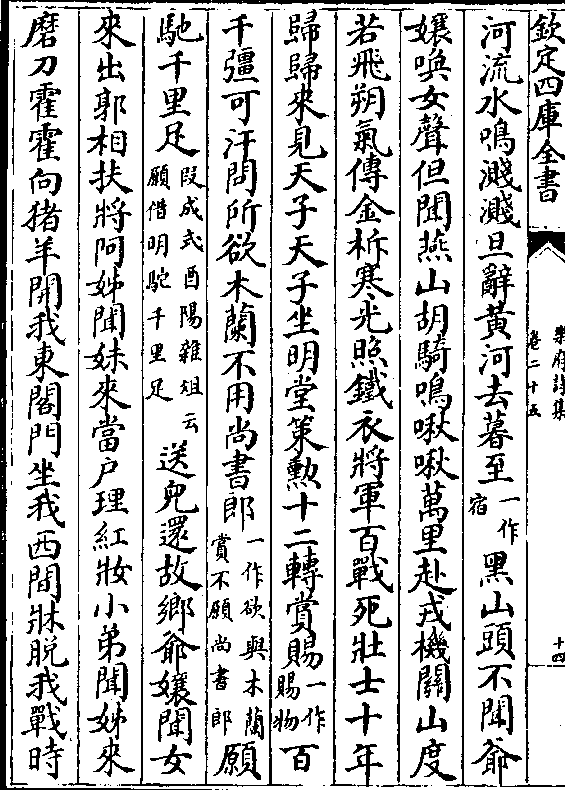 欽定四庫全書
樂府詩集
卷二十五
十四
河流水鳴濺濺旦辭黃河去暮至一作宿黑山頭不聞爺
孃喚女聲但聞燕山胡騎鳴啾啾萬里赴戎機關山度
若飛朔氣傳金柝寒光照鐵衣將軍百戰死壯士十年
歸歸來見天子天子坐明堂策勲十二轉賞賜一作賜物百
千彊可汗問所欲木蘭不用尚書郎一作欲與木蘭賞不願尚書郎願
馳千里足段成式酉陽雜俎云願借明駝千里足送兒還故鄉爺孃聞女
來出郭相扶將阿姊聞妹來當户理紅妝小弟聞姊來
磨刀霍霍向猪羊開我東閣門坐我西間牀脱我戰時